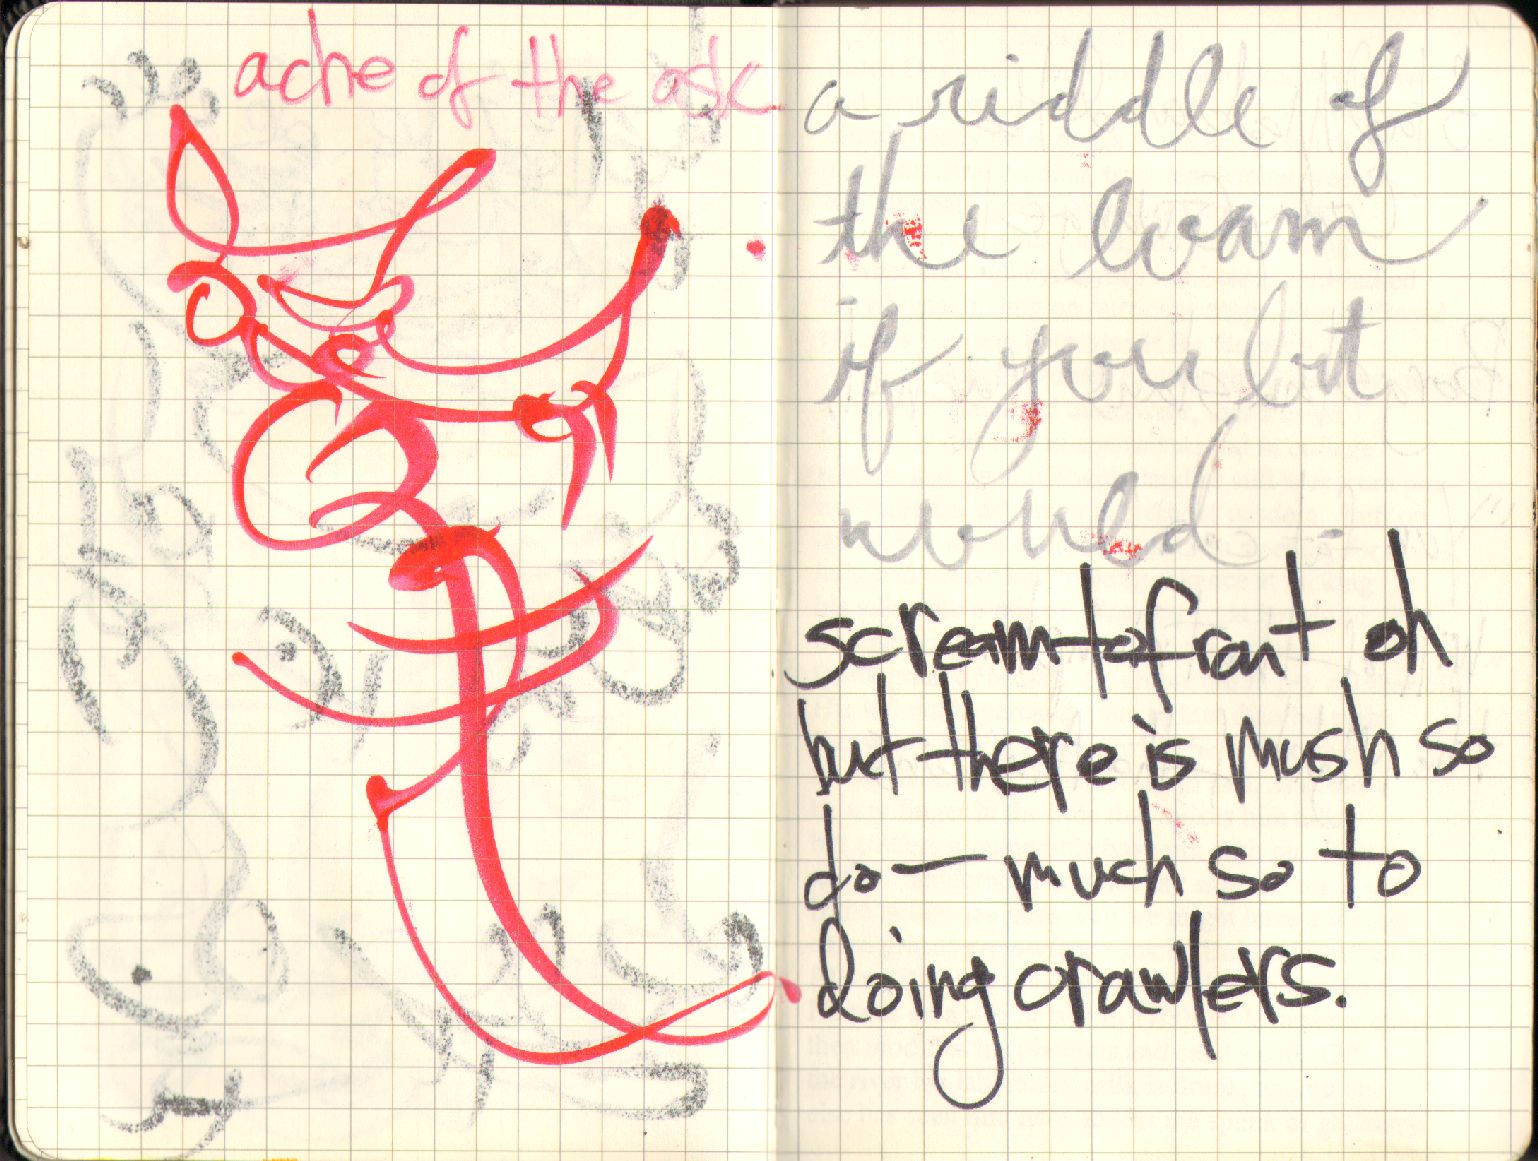 ache of the ask
a riddle of
the loam
if you but
would -
scream to front oh
but there is mush so
do — much so to
doing crawlers.